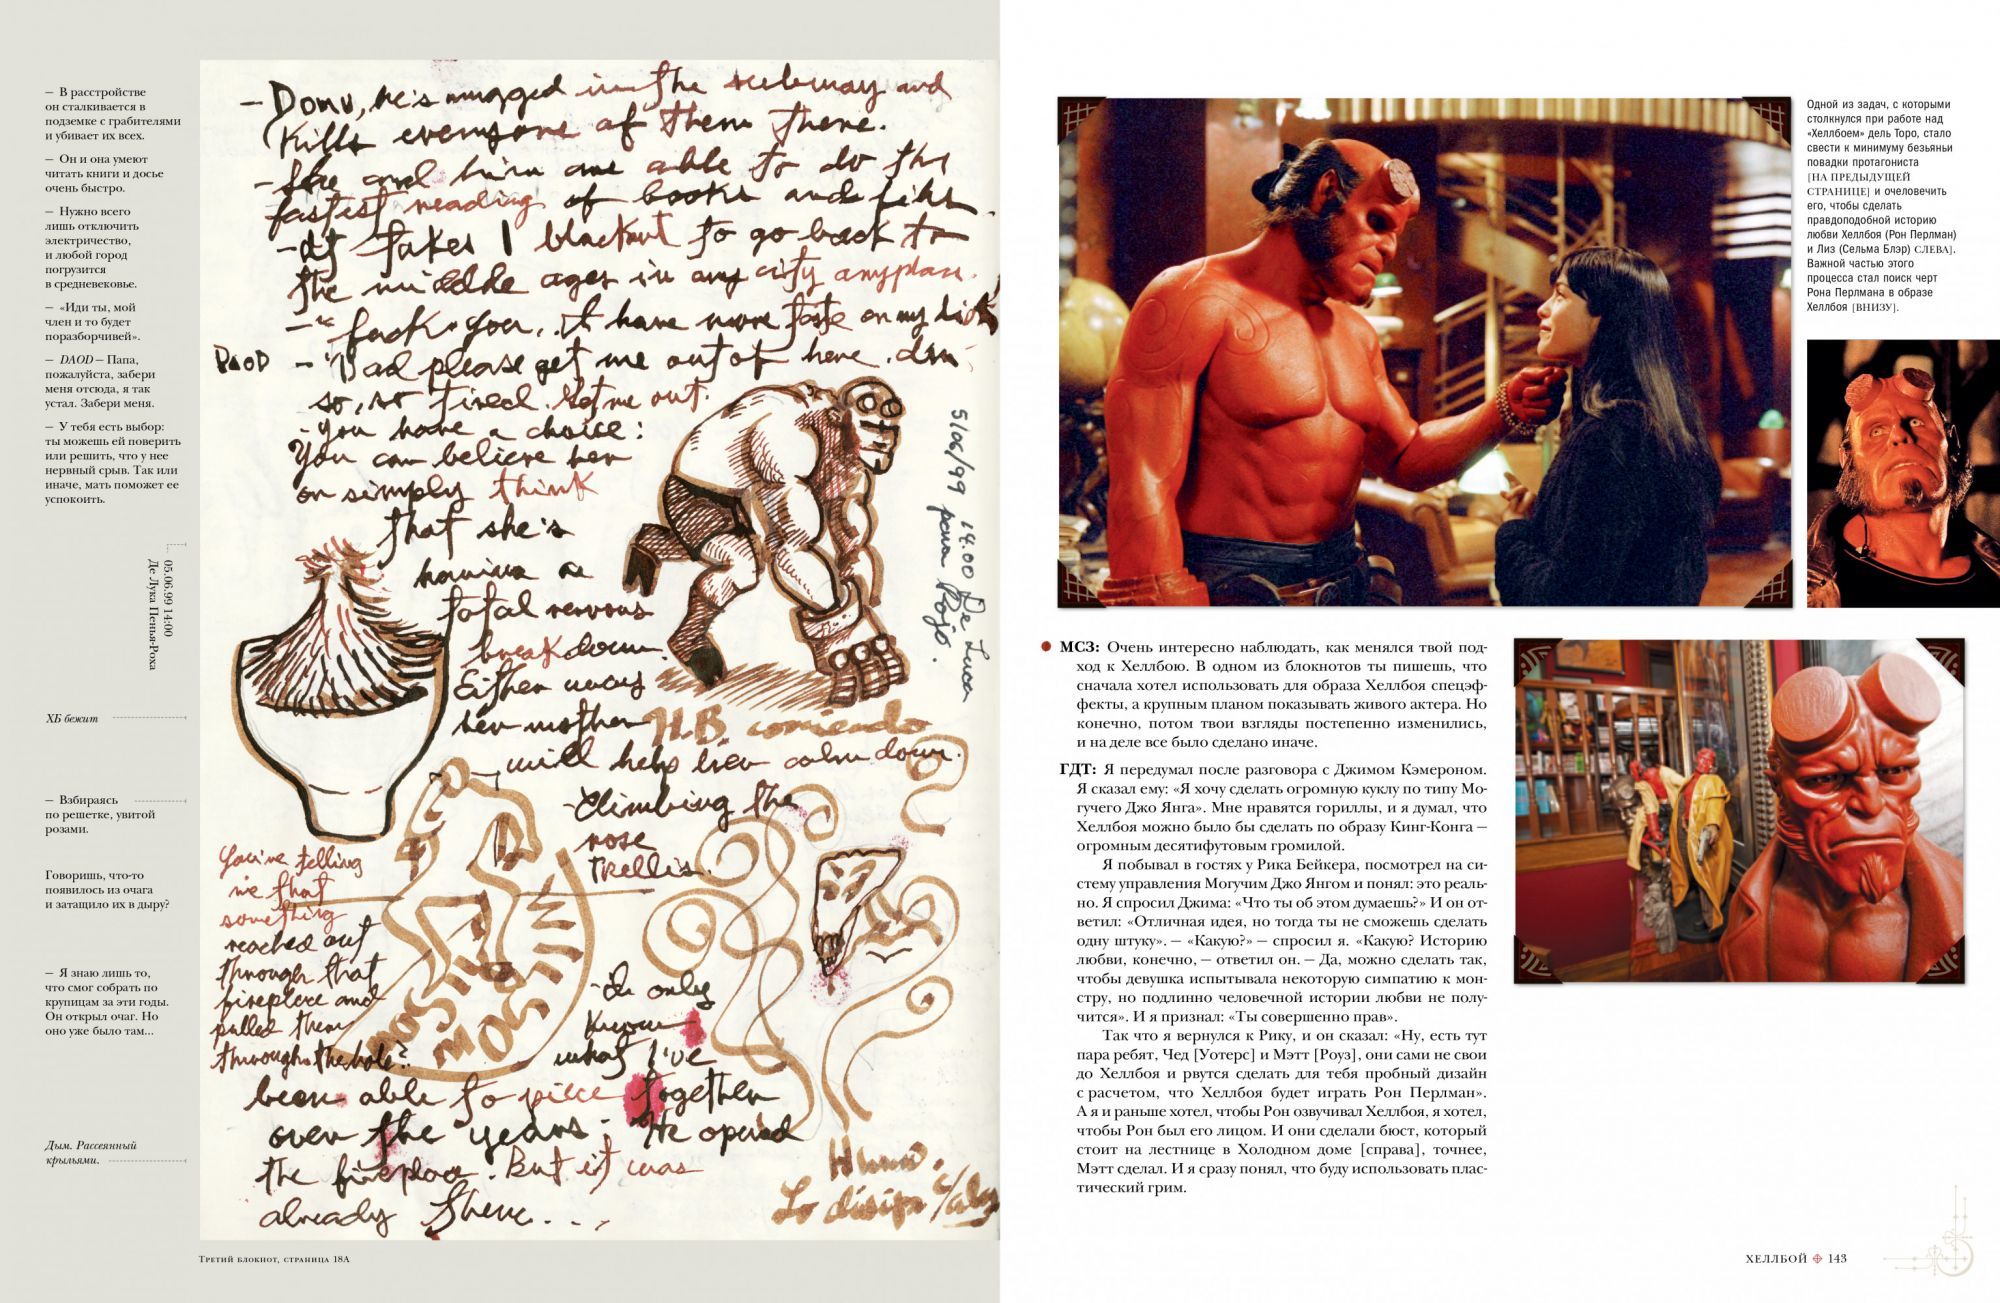 — В расстройстве
он сталкивается в
подземке с грабителями
и убивает их всех.
— Он и она умеют
читать книги и досье
очень быстро.
— Нужно всего
лишь отключить
электричество,
и любой город
погрузится
в средневековье.
— «Иди ты, мой
член и то будет
поразборчивей».
— DAOD — Папа,
пожалуйста, забери
меня отсюда, я так
устал. Забери меня.
— У тебя есть выбор:
ты можешь ей поверить
или решить, что у нее
нервный срыв. Так или
иначе, мать поможет ее
успокоить.
05.06.99 14:00
Де Лука Пенья-Роха
ХБ бежит
— Взбираясь
по решетке, увитой
розами.
Говоришь, что-то
появилось из очага
и затащило их в дыру?
— Я знаю лишь то,
что смог собрать по
крупицам за эти годы.
Он открыл очаг. Но
оно уже было там...
Дым. Рассеянный
крыльями.
he's mugged in the subway and
kills everyone of them there.
- She and him are able to do the
fastest reading of books and files.
- It takes 1 blackout to go back to
the middle ages in any city anyplace.
- "fuck you, I have more taste on my dick
DAOD - "Dad please get me out of here. I'm
so, so tired. Get me out.
- You have a choice:
You can believe her
or simply think
that she's
having a
total nervous
breakdown.
Either way
her mother
will help her calm down.
H.B. corriendo
5/06/99 14:00 De Luca
pena Rojo.
- Climbing the
rose
trellis.
You're telling
me that
something
reached out
through that
fireplace and
pulled them
through the hole?
- I only
know
what I've
been able to piece together
over the years. He opened
the fireplace. But it was
already there...
Humo.
Lo disipa c/alas
Третий блокнот, страница 18А
Одной из задач, с которыми
столкнулся при работе над
«Хеллбоем» дель Торо, стало
свести к минимуму безьяньи
повадки протагониста
[НА ПРЕДЫДУЩЕЙ
СТРАНИЦЕ] и очеловечить
его, чтобы сделать
правдоподобной историю
любви Хеллбоя (Рон Перлман)
и Лиз (Сельма Блэр) СЛЕВА].
Важной частью этого
процесса стал поиск черт
Рона Перлмана в образе
Хеллбоя [ВНИЗУ].
МСЗ: Очень интересно наблюдать, как менялся твой под-
ход к Хеллбою. В одном из блокнотов ты пишешь, что
сначала хотел использовать для образа Хеллбоя спецэф-
фекты, а крупным планом показывать живого актера. Но
конечно, потом твои взгляды постепенно изменились,
и на деле все было сделано иначе.
ГДТ: Я передумал после разговора с Джимом Кэмероном.
Я сказал ему: «Я хочу сделать огромную куклу по типу Мо-
гучего Джо Янга». Мне нравятся гориллы, и я думал, что
Хеллбоя можно было бы сделать по образу Кинг-Конга —
огромным десятифутовым громилой.
Я побывал в гостях у Рика Бейкера, посмотрел на си-
стему управления Могучим Джо Янгом и понял: это реаль-
но. Я спросил Джима: «Что ты об этом думаешь?» И он от-
ветил: «Отличная идея, но тогда ты не сможешь сделать
одну штуку». — «Какую?» — спросил я. «Какую? Историю
любви, конечно, — ответил он. — Да, можно сделать так,
чтобы девушка испытывала некоторую симпатию к мон-
стру, но подлинно человечной истории любви не полу-
чится». И я признал: «Ты совершенно прав».
Так что я вернулся к Рику, и он сказал: «Ну, есть тут
пара ребят, Чед [Уотерс] и Мэтт [Роуз], они сами не свои
до Хеллбоя и рвутся сделать для тебя пробный дизайн
с расчетом, что Хеллбоя будет играть Рон Перлман».
А я и раньше хотел, чтобы Рон озвучивал Хеллбоя, я хотел,
чтобы Рон был его лицом. И они сделали бюст, который
стоит на лестнице в Холодном доме [справа], точнее,
Мэтт сделал. И я сразу понял, что буду использовать плас-
тический грим.
ХЕЛЛБОЙ 143